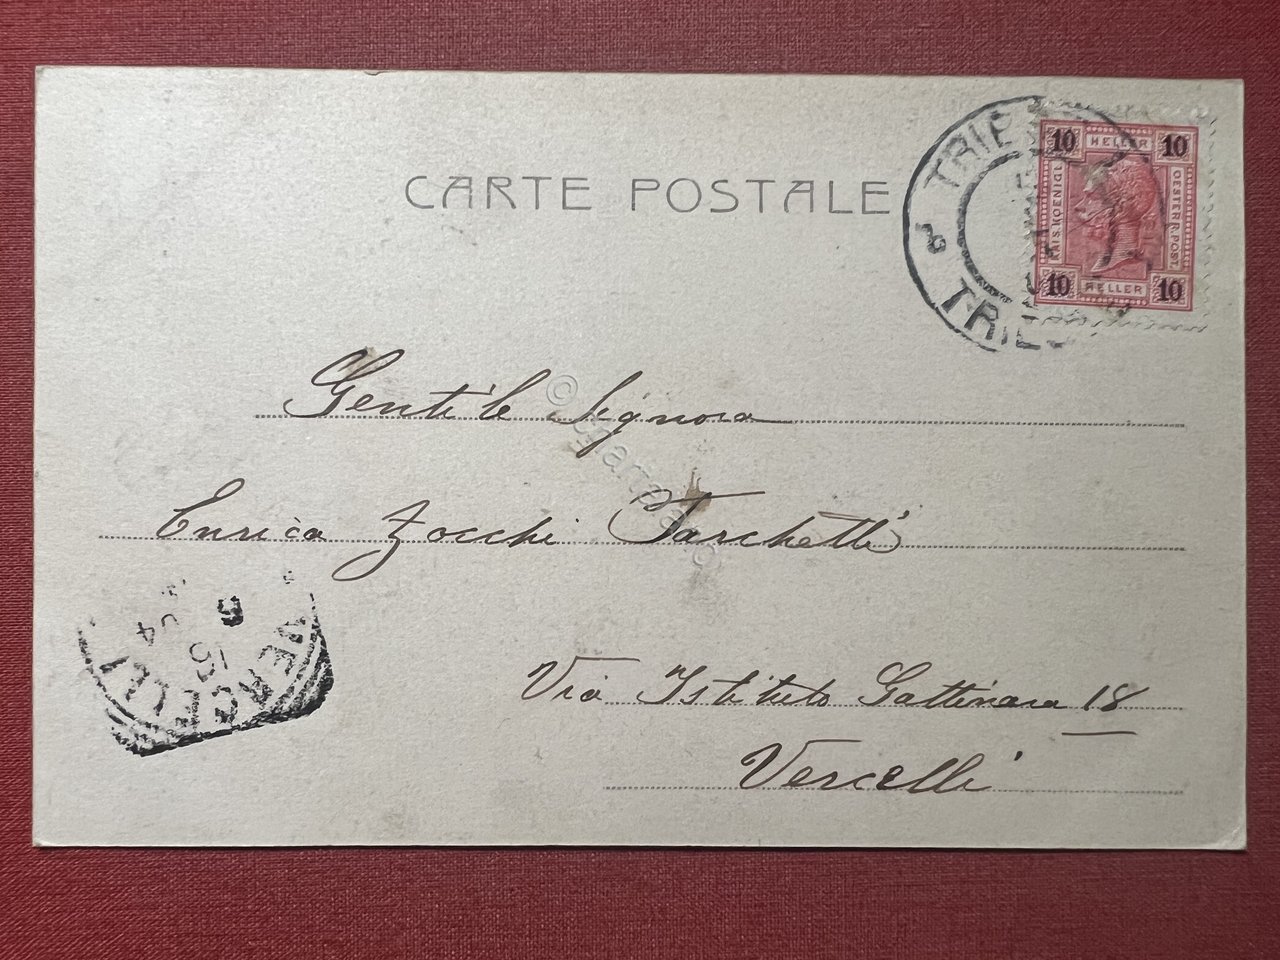 CARTE POSTALE
TRIE
TRIES
10 HELLER 10
KAIS.KOENIGL.
OESTERR.POST.
10 HELLER 10
Gentile Signora
Enrica Zocchi Tarchetti
Via Istituto Gattinara 18
Vercelli
VERCELLI
6
15
04
© Bhartpark